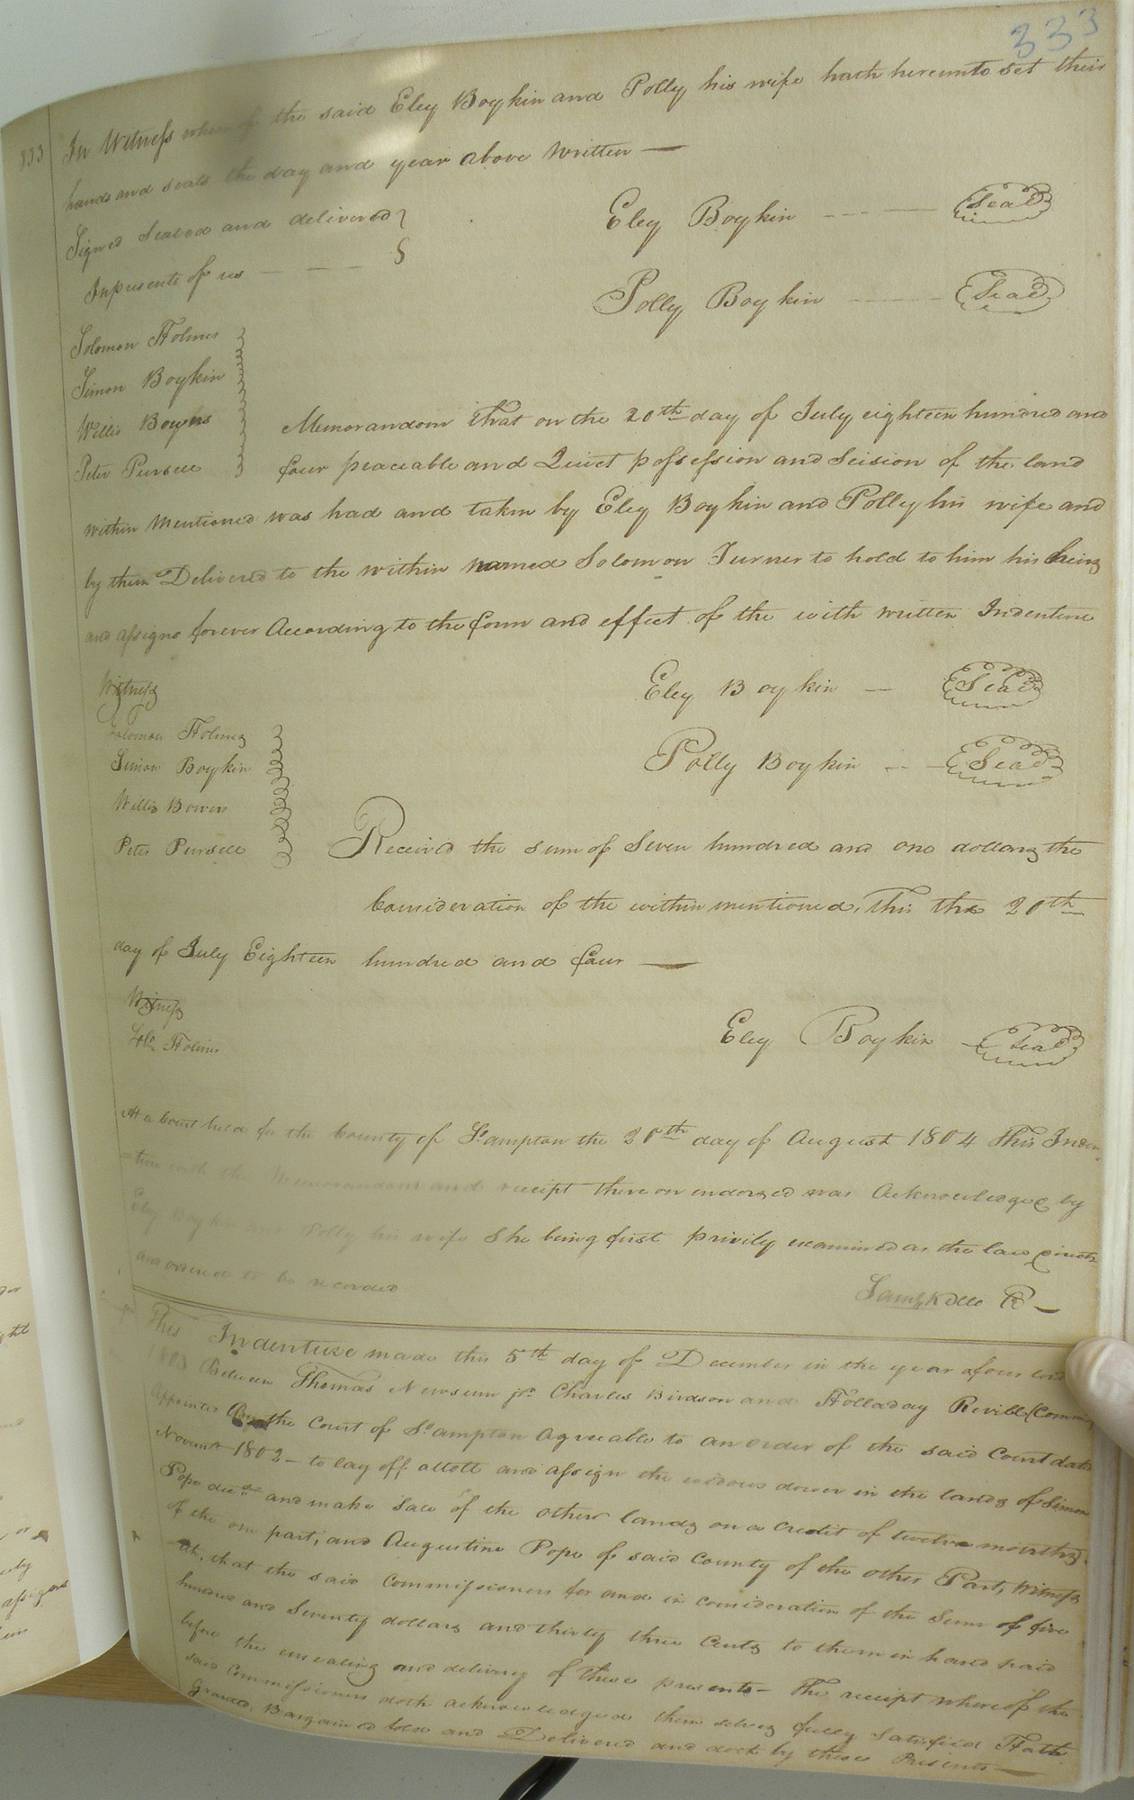 333
333 In Witness whereof the said Eley Boykin and Polly his wife hath hereunto set their
hands and seals the day and year above Written —
Signed Sealed and delivered
In presents of us — — —
Eley Boykin - - - — Seal
Polly Boykin - - - - - Seal
Solomon Holmes
Simon Boykin
Willis Bowers
Peter Pursell
Memorandom That on the 20th day of July eighteen hundred and
four peaceable and Quiet possession and Seision of the land
within Mentioned was had and taken by Eley Boykin and Polly his wife and
by them Delivered to the within named Solomon Turner to hold to him his heirs
and assigns forever According to the form and effect of the with written Indenture
Witness
Solomon Holmes
Simon Boykin
Willis Bowers
Peter Pursell
Eley Boykin — Seal
Polly Boykin - - - Seal
Received the sum of Seven hundred and one dollars the
Consideration of the within mentioned, This the 20th
day of July Eighteen hundred and four —
Witness
Solo Holmes
Eley Boykin — Seal
At a Court held for the County of So.ampton the 20th day of August 1804 This Inden
-ture with the Memorandom and receipt thereon endorsed was Acknowledged by
Eley Boykin and Polly his wife She being first privily examined as the law directs
and ordered to be recorded
Saml Kello
This Indenture made this 5th day of December in the year of our lord
1803 Between Thomas Newsum jr. Charles Birdson and Holladay Revill (Comm
appointed by the Court of So.ampton Agreeable to an order of the said Court date
Novemr 1802 - to lay off allott and assign the widows dower in the lands of Simon
Pope decd and make Sale of the other lands on a Credit of twelve months)
of the one part, and Augustine Pope of said County of the other Part, Witness
-eth, that the said Commissioners for and in consideration of the Sum of five
hundred and Seventy dollars and thirty three Cents to them in hand paid
before the ensealing and delivery of these presents - The receipt whereof the
said Commissioners doth acknowledged them selves fully Satisfied Hath
Granted, Bargained Sold and Delivered and doth by these Presents —